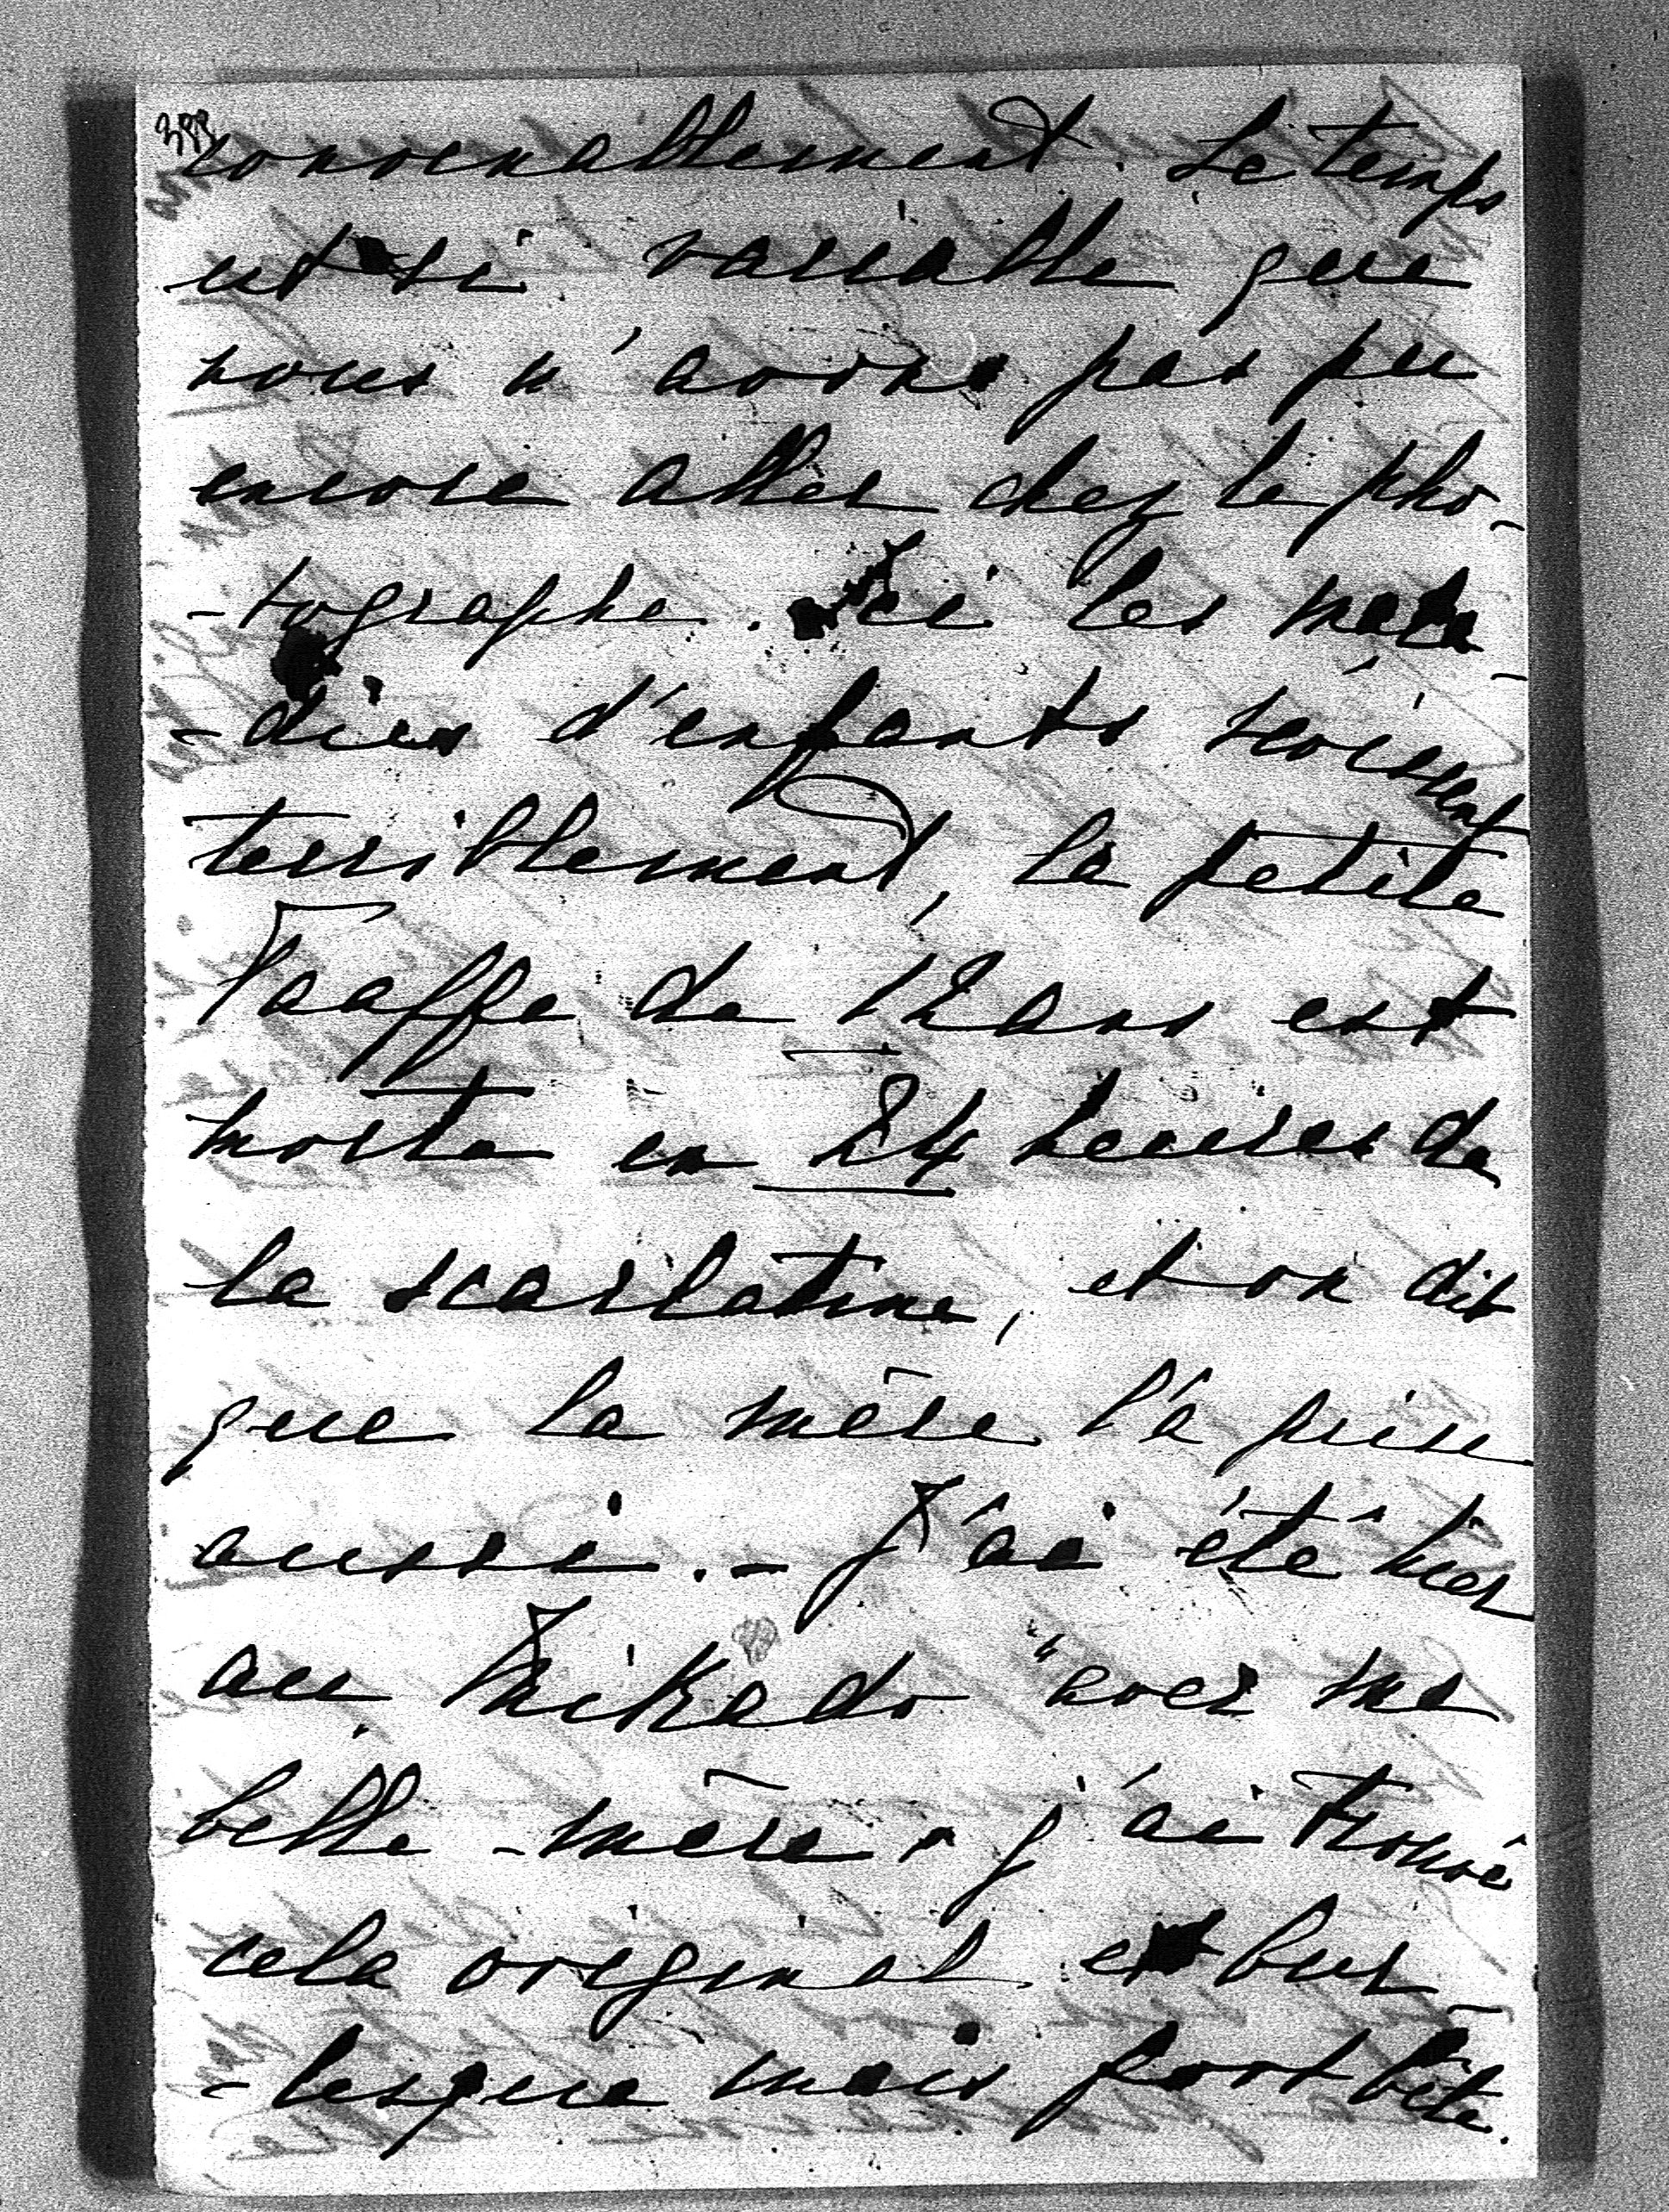 convenablement. Le temps
est si variable que
nous n'avons pas pu
encore aller chez le pho-
-tographe. Ici les mala-
-dies d'enfants sévissent
terriblement, la petite
Taaffe de 12 ans est
morte en 24 heures de
la scarlatine, et on dit
que la mère l'a prise
aussi. - J'ai été hier
au „Mikado" avec ma
belle-mère, j'ai trouvé
cela original et bur-
-lesque mais fort bête.